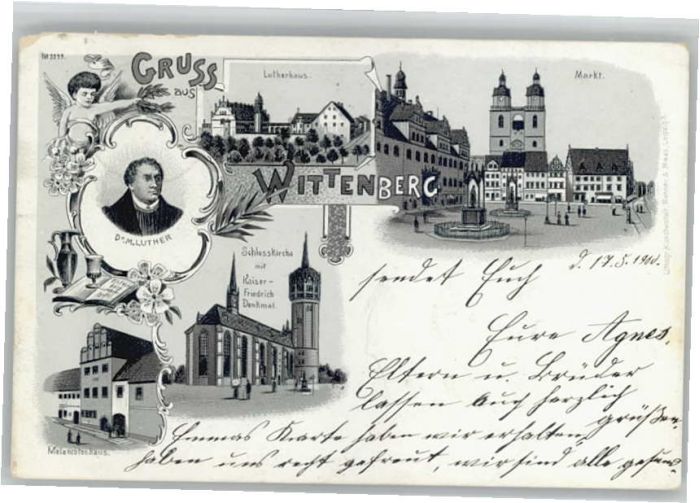 GRUSS
aus
WITTENBERG.
Lutherhaus.
Markt.
Dr. M. LUTHER
Schlosskirche
mit
Kaiser-
Friedrich
Denkmal.
Melanchtonhaus.
sendet Euch d. 17.5.1900.
Eure Agnes.
Eltern u. Brüder
lassen Euch herzlich
grüßen.
Emmas Karte haben wir erhalten,
haben uns recht gefreut, wir sind alle gesund.